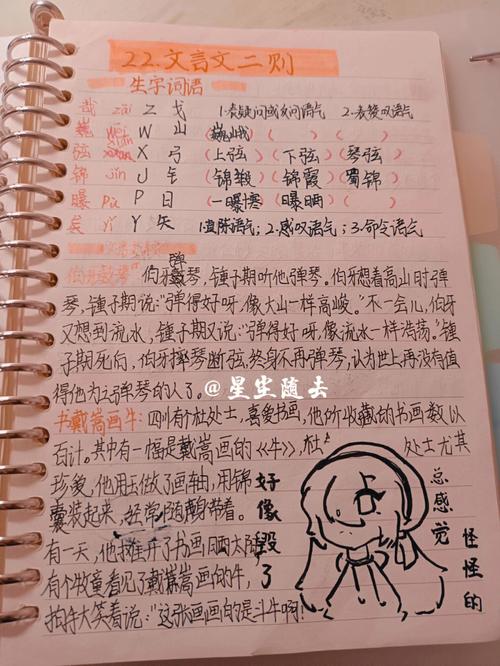 22.文言文二则
生字词语
哉 zāi Z 戈 1.表疑问或反问语气 2.表感叹语气
巍 wēi W 山 (巍峨) ( ) ( )
弦 xián X 弓 (上弦) (下弦) (琴弦)
锦 jǐn J 钅 (锦缎) (锦霞) (蜀锦)
曝 pù P 日 (一曝十寒) (曝晒) ( )
矣 yǐ Y 矢 1.直陈语气;2.感叹语气;3.命令语气
弹
伯牙鼓琴:伯牙鼓琴,锺子期听他弹琴。伯牙想着高山时弹
琴,锺子期说:"弹得好呀,像大山一样高峻。"不一会儿,伯牙
又想到流水,锺子期又说:"弹得好呀,像流水一样浩荡。"锺
子期死后,伯牙摔琴断弦,终身不再弹琴,认为世上再没有值
得他为之弹琴的人了。
@星尘随去
书戴嵩画牛:四川有个杜处士,喜爱书画,他所收藏的书画数以
百计。其中有一幅是戴嵩画的《牛》,杜处士尤其
珍爱,他用玉做了画轴,用锦
囊装起来,经常随身带着。
有一天,他摊开了书画晒太阳,
有个牧童看见了戴嵩画的牛,
拍手大笑着说:"这张画画的是斗牛啊!
好像毁了
总感觉
怪怪的